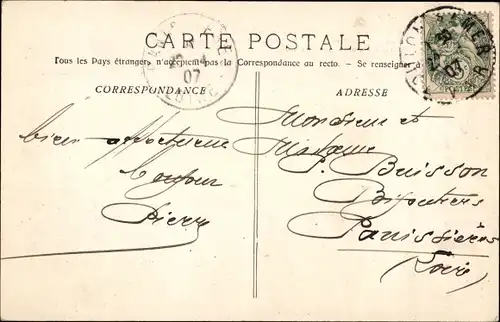 CARTE POSTALE
Tous les Pays étrangers n'acceptent pas la Correspondance au recto. — Se renseigner à
CORRESPONDANCE
ADRESSE
bien affectueux
bonjour
Pierre
Monsieur et
Madame
P. Buisson
Bijoutiers
Panissières
(Loire)
07
07